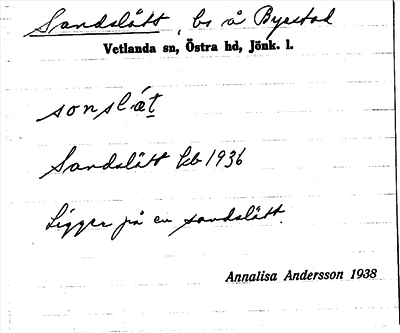 Sandslätt, bs å Byestad
Vetlanda sn, Östra hd, Jönk. l.
sonslæt
Sandslätt kb 1936
Ligger på en sandslätt.
Annalisa Andersson 1938